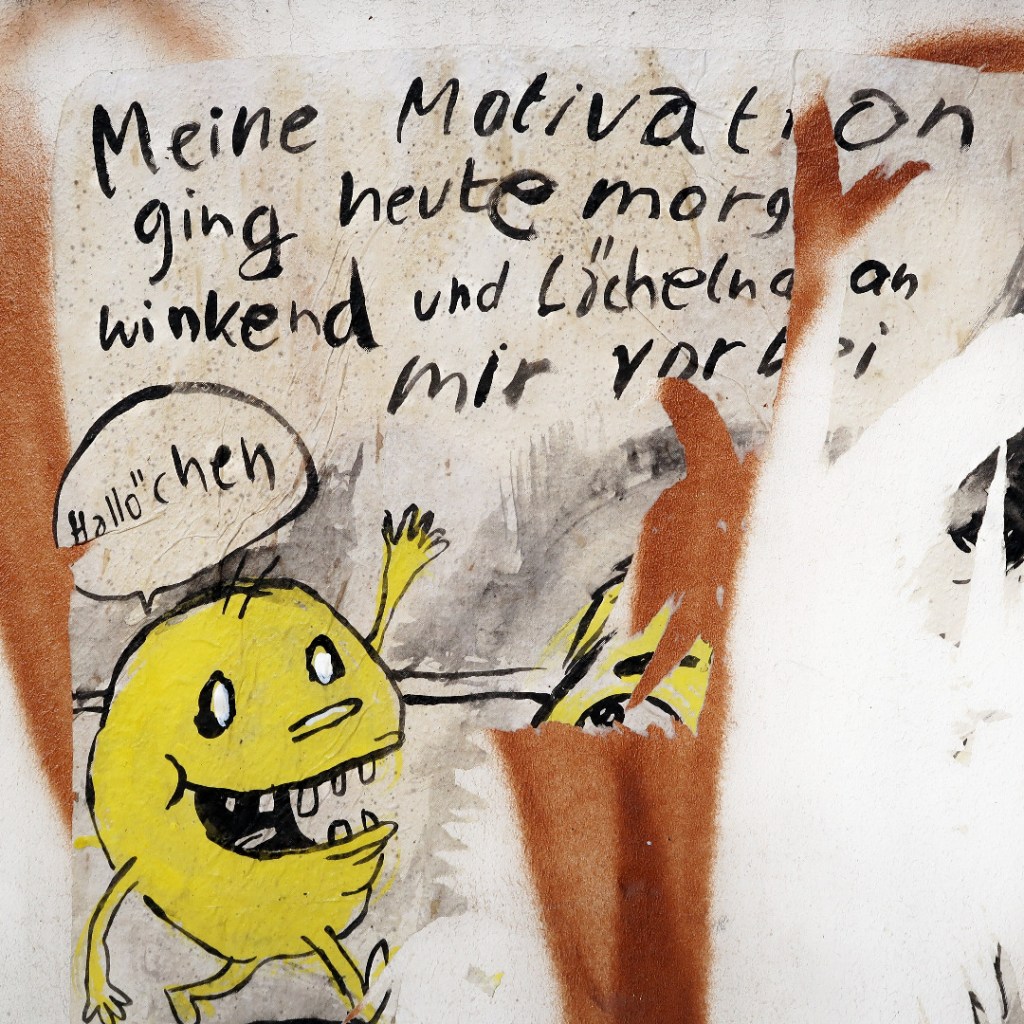 Meine Motivation
ging heute morg
winkend und Lächelnd an
mir vorbei
Hallöchen